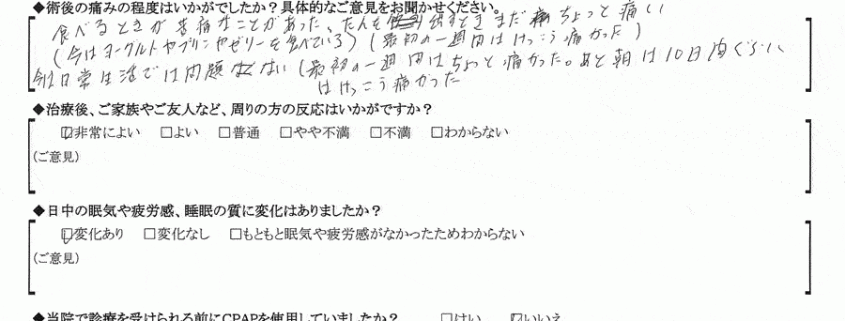 ◆術後の痛みの程度はいかがでしたか？具体的なご意見をお聞かせください。
食べるときが苦痛なことがあった、たんを出すときまだちょっと痛い
(今はヨーグルトやプリンやゼリーを食べている) (最初の一週間はけっこう痛かった)
今は日常生活では問題ない(最初の一週間はちょっと痛かった。あと朝は10日間ぐらい
はけっこう痛かった
◆治療後、ご家族やご友人など、周りの方の反応はいかがですか？
☑非常によい □よい □普通 □やや不満 □不満 □わからない
(ご意見)
◆日中の眠気や疲労感、睡眠の質に変化はありましたか？
☑変化あり □変化なし □もともと眠気や疲労感がなかったためわからない
(ご意見)
◆当院で診療を受けられる前にCPAPを使用していましたか？ □はい ☑いいえ